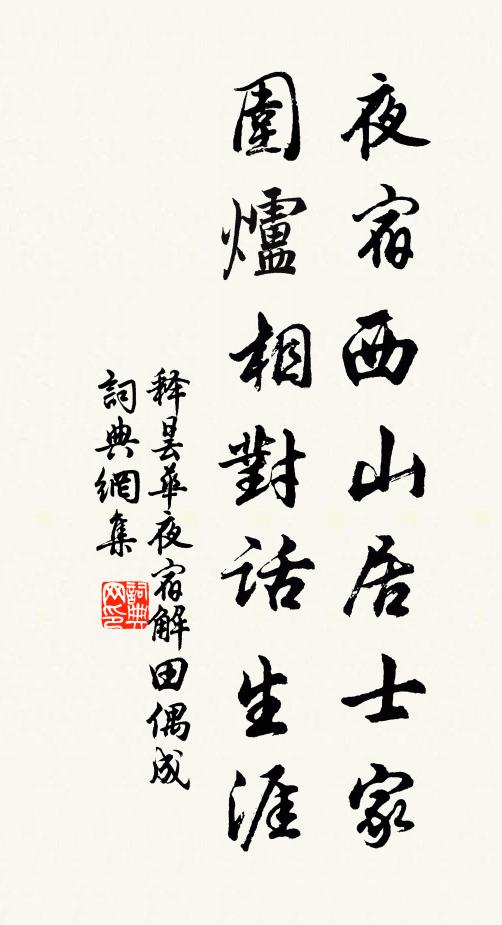 夜宿西山居士家
圍爐相對話生涯
释曇華夜宿解田偶成
詞典網集
詞典
网印